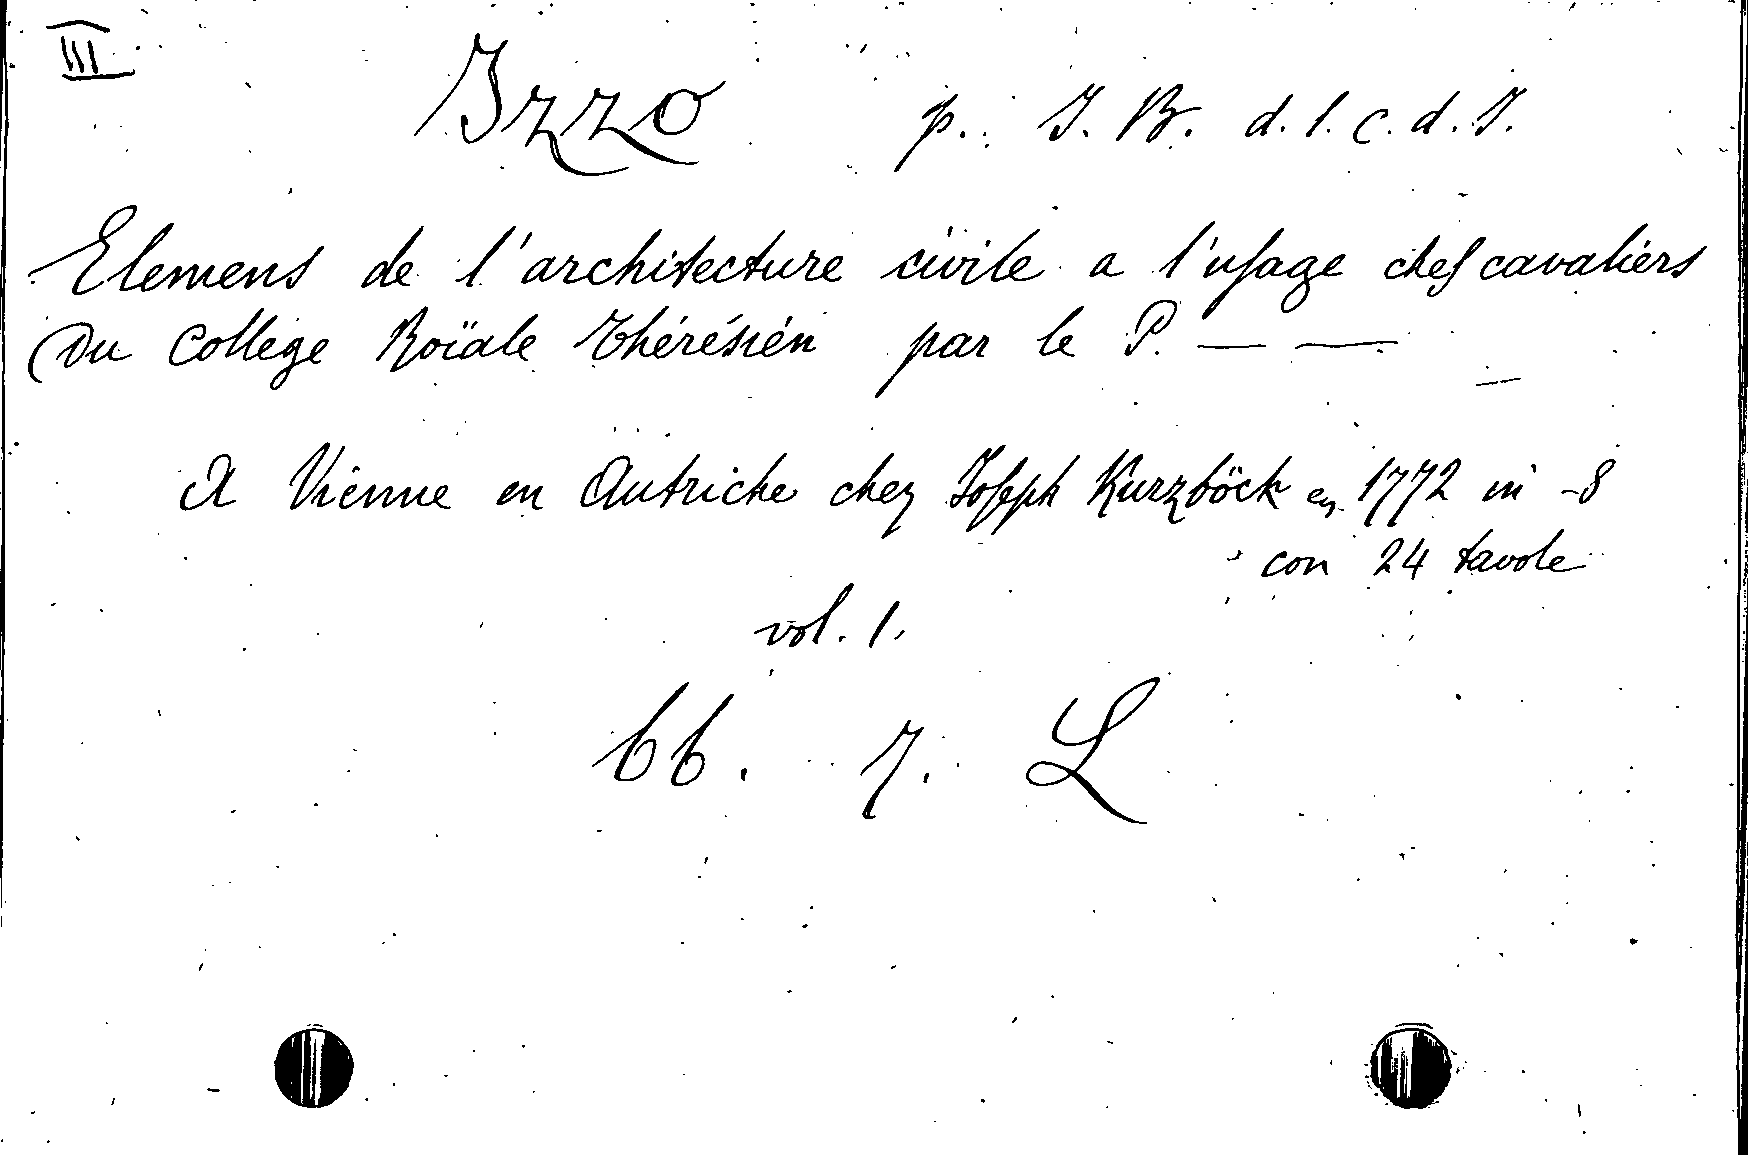 III
Izzo p. J. B. d. l. c. d. J.
Elemens de l'architecture civile a l'uſage cheſ cavaliers
Du College Roïale Thérésién par le P. — —
A Vienne en Autriche chez Joſeph Kurzböck en 1772 in -8
con 24 tavole
vol. 1.
66. 7. L